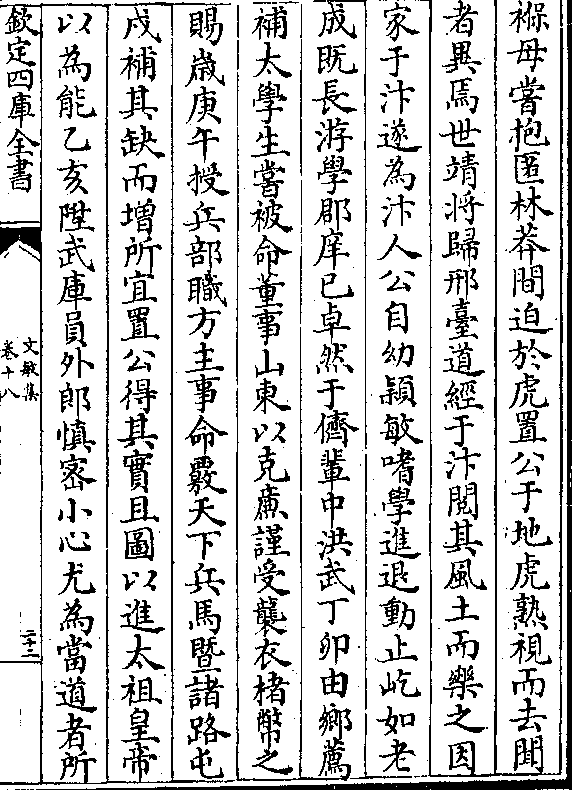 褓母嘗抱匿林莽間迫於虎置公于地虎熟視而去聞
者異焉世靖將歸邢臺道經于汴閲其風土而樂之因
家于汴遂為汴人公自幼頴敏嗜學進退動止屹如老
成既長游學郡庠已卓然于儕輩中洪武丁卯由鄉薦
補太學生嘗被命董事山東以克亷謹受襲衣楮幣之
賜歲庚午授兵部職方主事命覈天下兵馬暨諸路屯
戍補其缺而增所宜置公得其實且圖以進太祖皇帝
以為能乙亥陞武庫員外郎慎宻小心尤為當道者所
欽定四庫全書
文敏集
卷十八
二十三